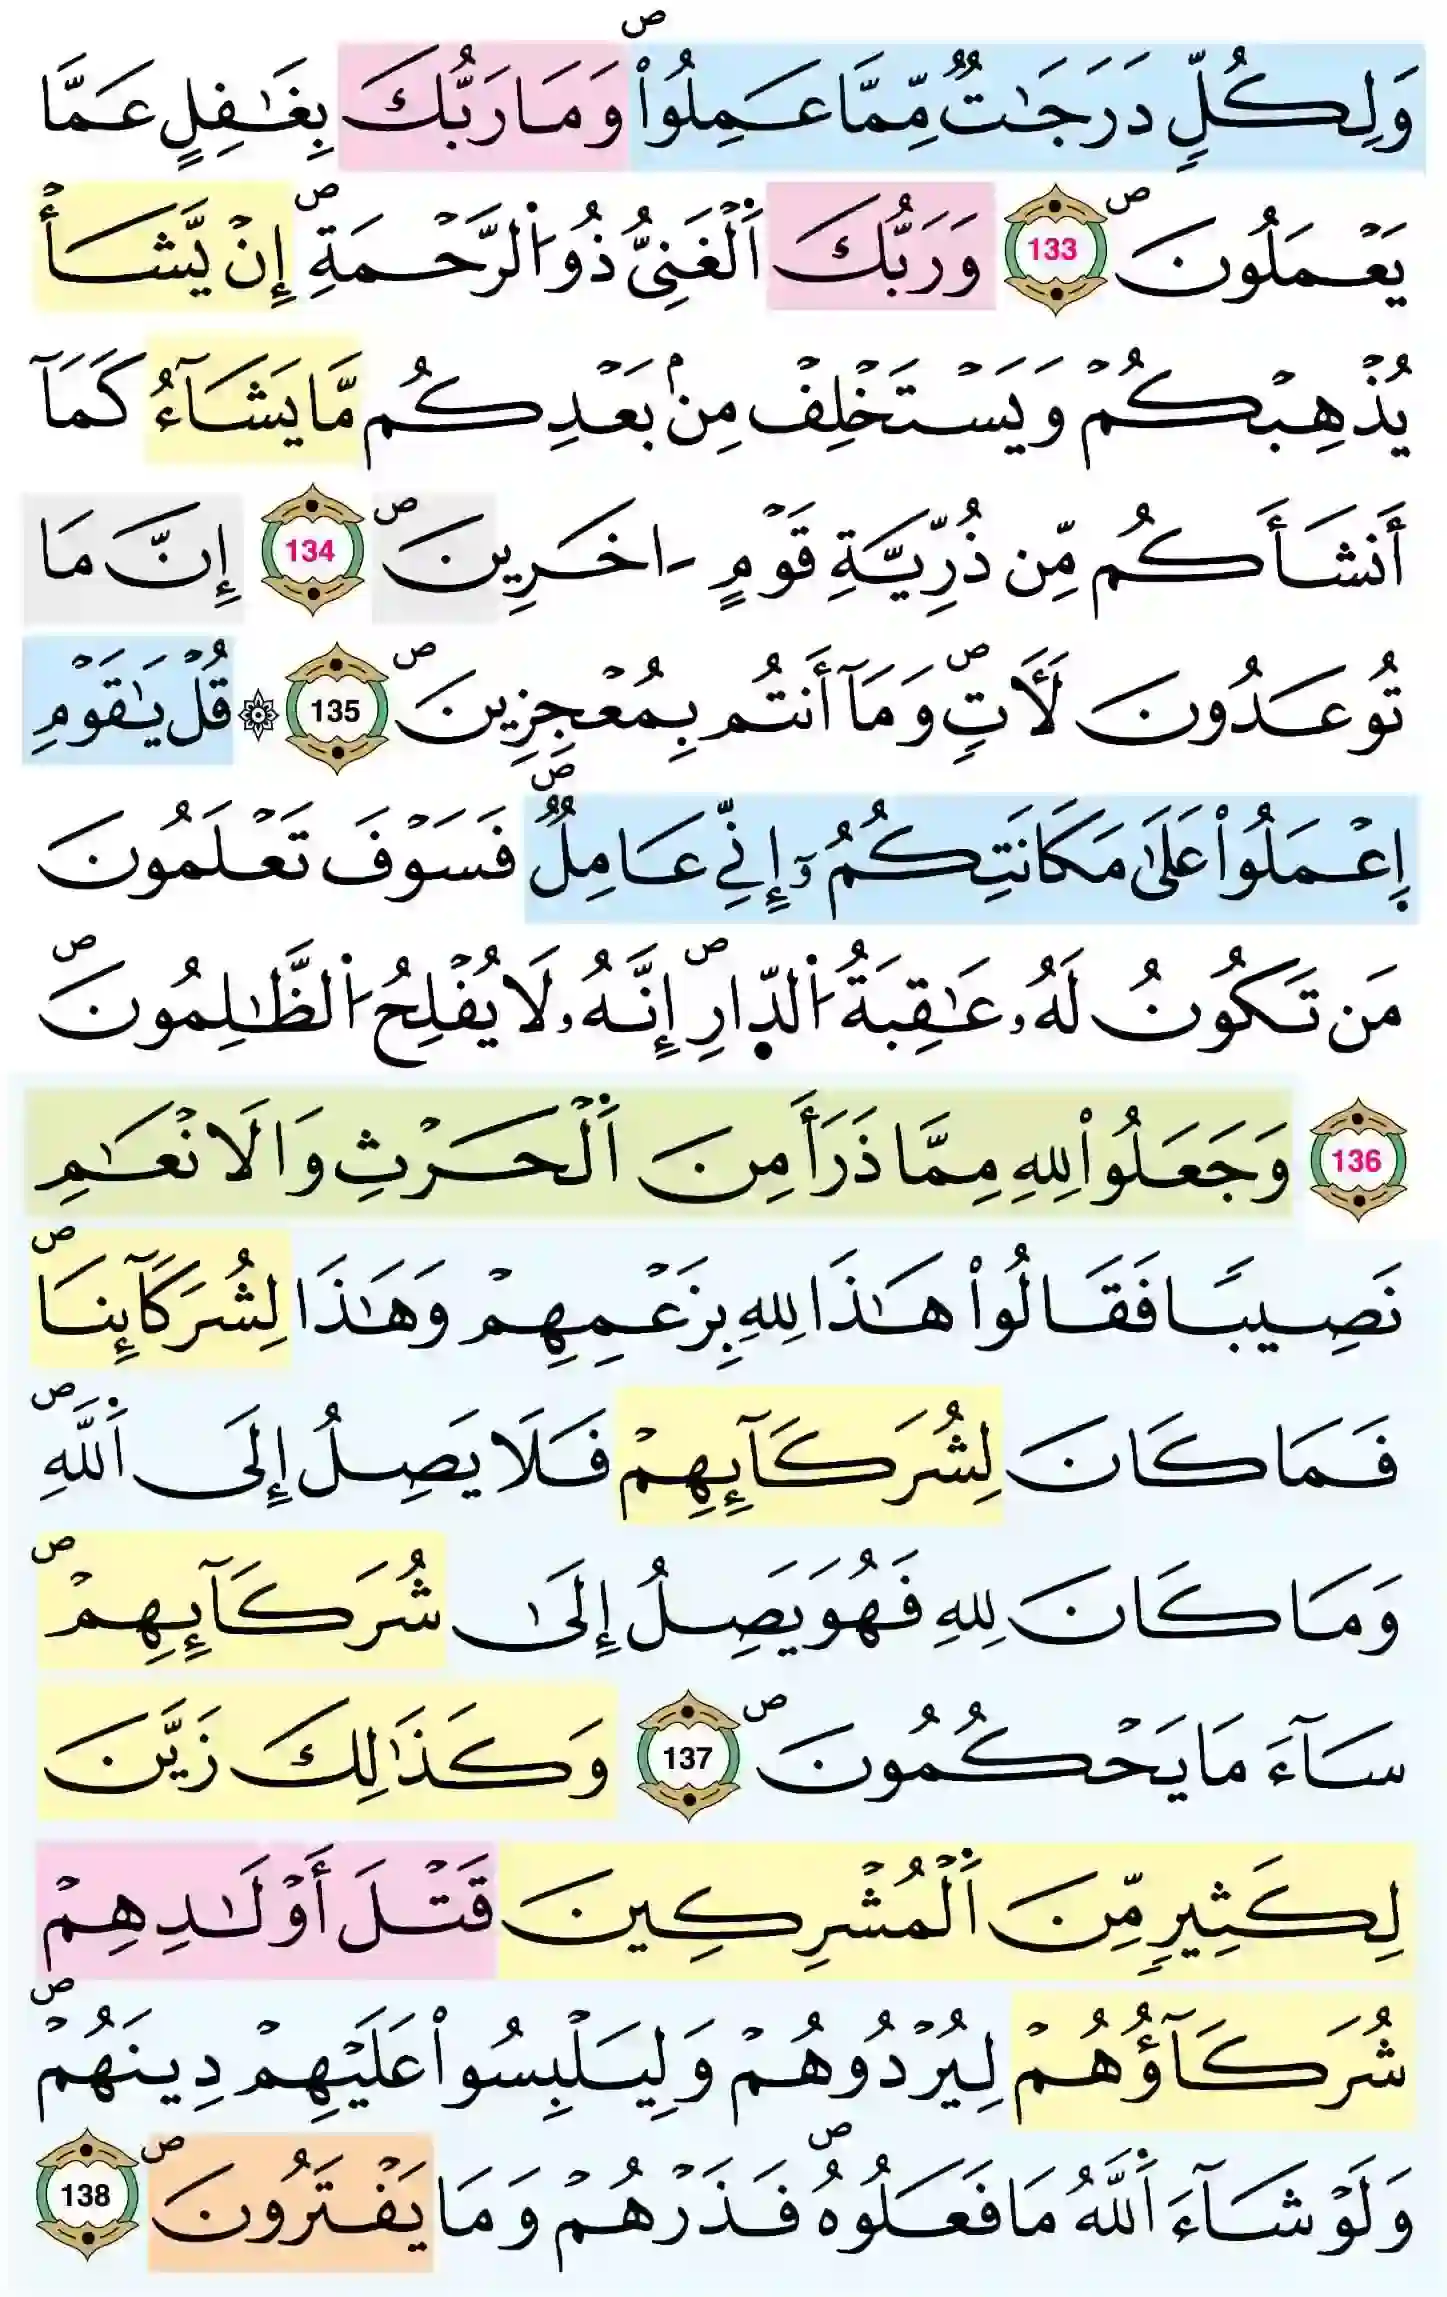 وَلِكُلٍّ دَرَجَٰتٞ مِّمَّا عَمِلُواْۖ وَمَا رَبُّكَ بِغَٰفِلٍ عَمَّا
يَعْمَلُونَۖ 133 وَرَبُّكَ اَ۬لْغَنِيُّ ذُو اُ۬لرَّحْمَةِۖ إِنْ يَّشَأْ
يُذْهِبْكُمْ وَيَسْتَخْلِفْ مِنۢ بَعْدِكُم مَّا يَشَآءُ كَمَآ
أَنشَأَكُم مِّن ذُرِّيَّةِ قَوْمٍ ـاخَرِينَۖ 134 إِنَّ مَا
تُوعَدُونَ لَأٓتٖۖ وَمَآ أَنتُم بِمُعْجِزِينَۖ 135 ۞ قُلْ يَٰقَوْمِ
اِ۪عْمَلُواْ عَلَىٰ مَكَانَتِكُمُۥٓ إِنِّي عَامِلٞۖ فَسَوْفَ تَعْلَمُونَ
مَن تَكُونُ لَهُۥ عَٰقِبَةُ اُ۬لدّ۪ارِۖ إِنَّهُۥ لَا يُفْلِحُ اُ۬لظَّٰلِمُونَۖ
136 وَجَعَلُواْ لِلهِ مِمَّا ذَرَأَ مِنَ اَ۬لْحَرْثِ وَالَانْعَٰمِ
نَصِيبٗا فَقَالُواْ هَٰذَا لِلهِ بِزَعْمِهِمْ وَهَٰذَا لِشُرَكَآئِنَاۖ
فَمَا كَانَ لِشُرَكَآئِهِمْ فَلَا يَصِلُ إِلَى اَ۬للَّهِۖ
وَمَا كَانَ لِلهِ فَهُوَ يَصِلُ إِلَىٰ شُرَكَآئِهِمْۖ
سَآءَ مَا يَحْكُمُونَۖ 137 وَكَذَٰلِكَ زَيَّنَ
لِكَثِيرٖ مِّنَ اَ۬لْمُشْرِكِينَ قَتْلَ أَوْلَٰدِهِمْ
شُرَكَآؤُهُمْ لِيُرْدُوهُمْ وَلِيَلْبِسُواْ عَلَيْهِمْ دِينَهُمْۖ
وَلَوْ شَآءَ اَ۬للَّهُ مَا فَعَلُوهُۖ فَذَرْهُمْ وَمَا يَفْتَرُونَۖ 138